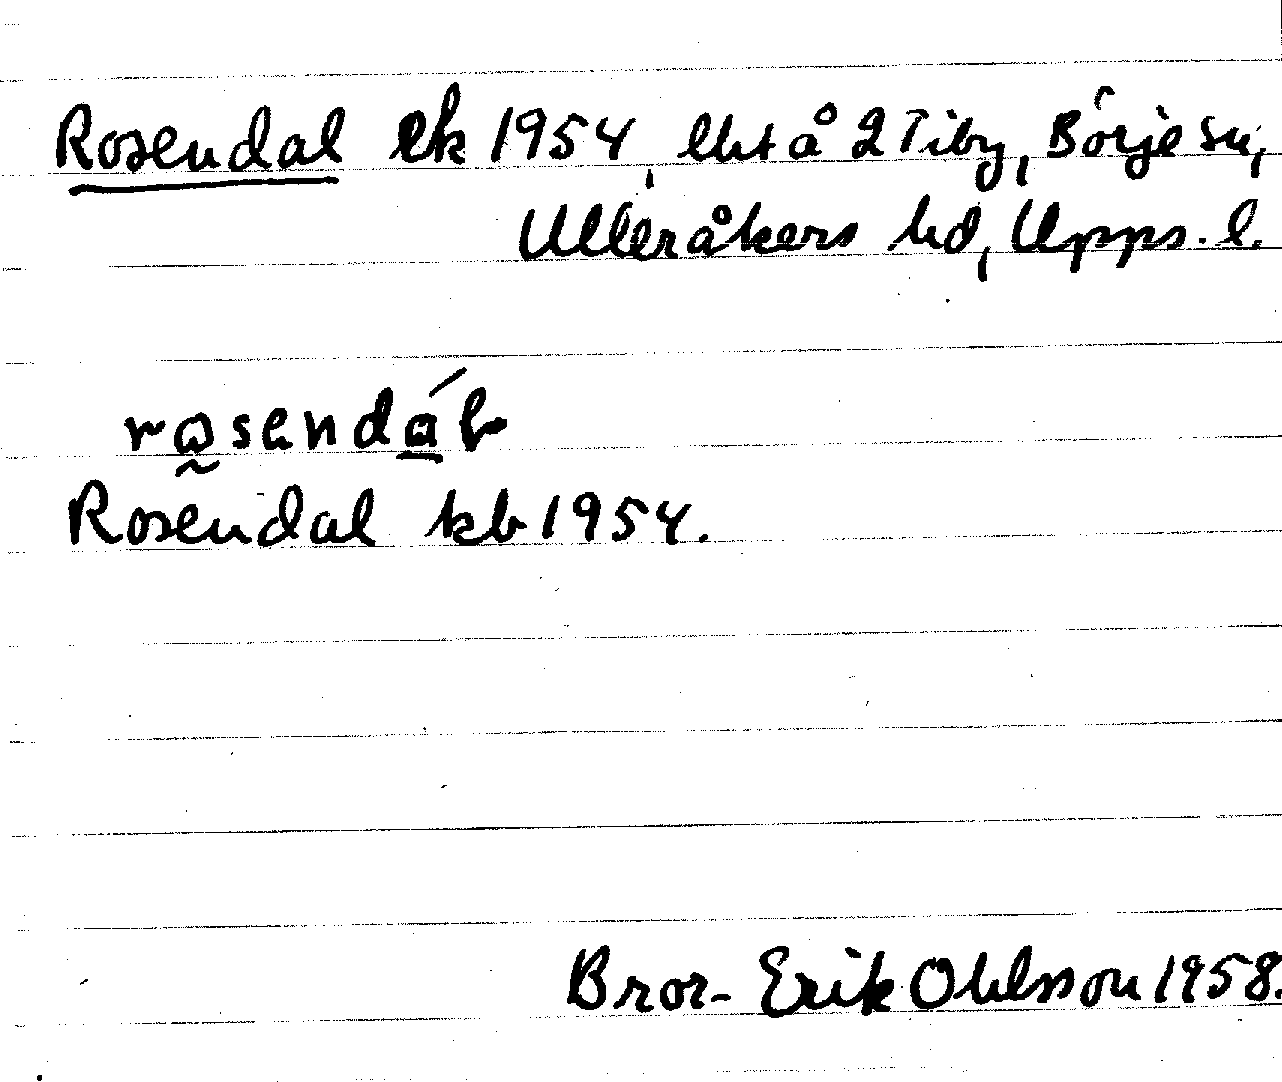 Rosendal ek 1954, lht å 2 Tiby, Börje sn,
Ulleråkers hd, Upps. l.
rosendál
Rosendal kb 1954.
Bror-Erik Ohlsson 1958.